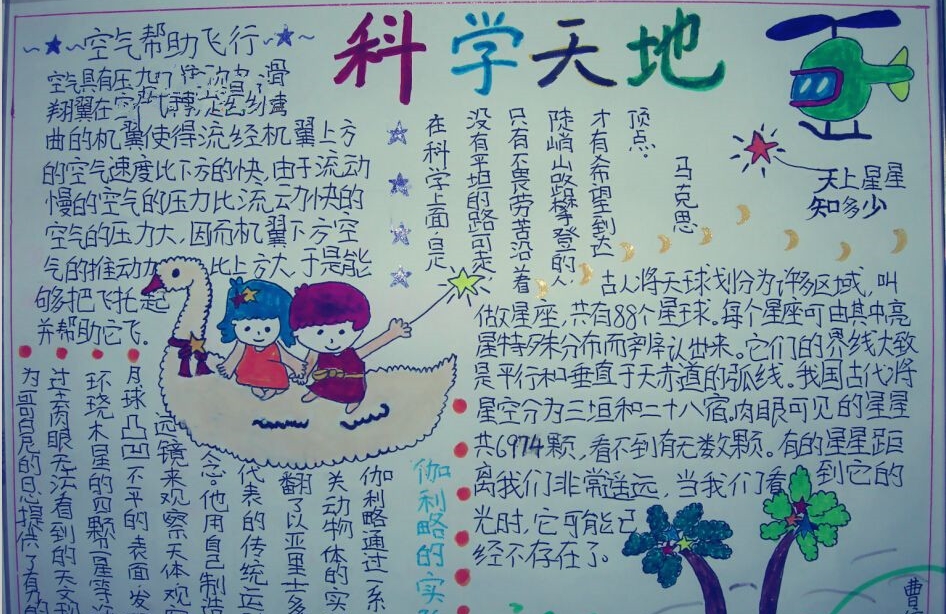 科学天地
空气帮助飞行
空气具有压力
滑
翔翼在空气
曲的机翼使得流经机翼上方
的空气速度比下方的快,由于流动
慢的空气的压力比流动快的
空气的压力大,因而机翼下方空
气的推动力比上方大,于是能
够把飞托起
并帮助它飞。
在科学上面是
没有平坦的路可走
只有不畏劳苦沿着
陡峭山路攀登的人
才有希望到达
顶点。
马克思
天上星星
知多少
古人将天球划分为许多区域,叫
做星座,共有88个星球。每个星座可由其中亮
星特殊分布而辨认出来。它们的界线大致
是平行和垂直于天赤道的弧线。我国古代将
星空分为三垣和二十八宿。肉眼可见的星星
共6974颗,看不到有无数颗。有的星星距
离我们非常遥远,当我们看到它的
光时,它可能已
经不存在了。
伽利略的实
伽利略通过一系
关动物体的实
翻了以亚里士多
代表的传统运
念。他用自己制造
远镜来观察天体观
月球凸凹不平的表面,发
环绕木星的四颗卫星等
过去肉眼无法看到的天文现
为哥白尼的日提供了有力
曹